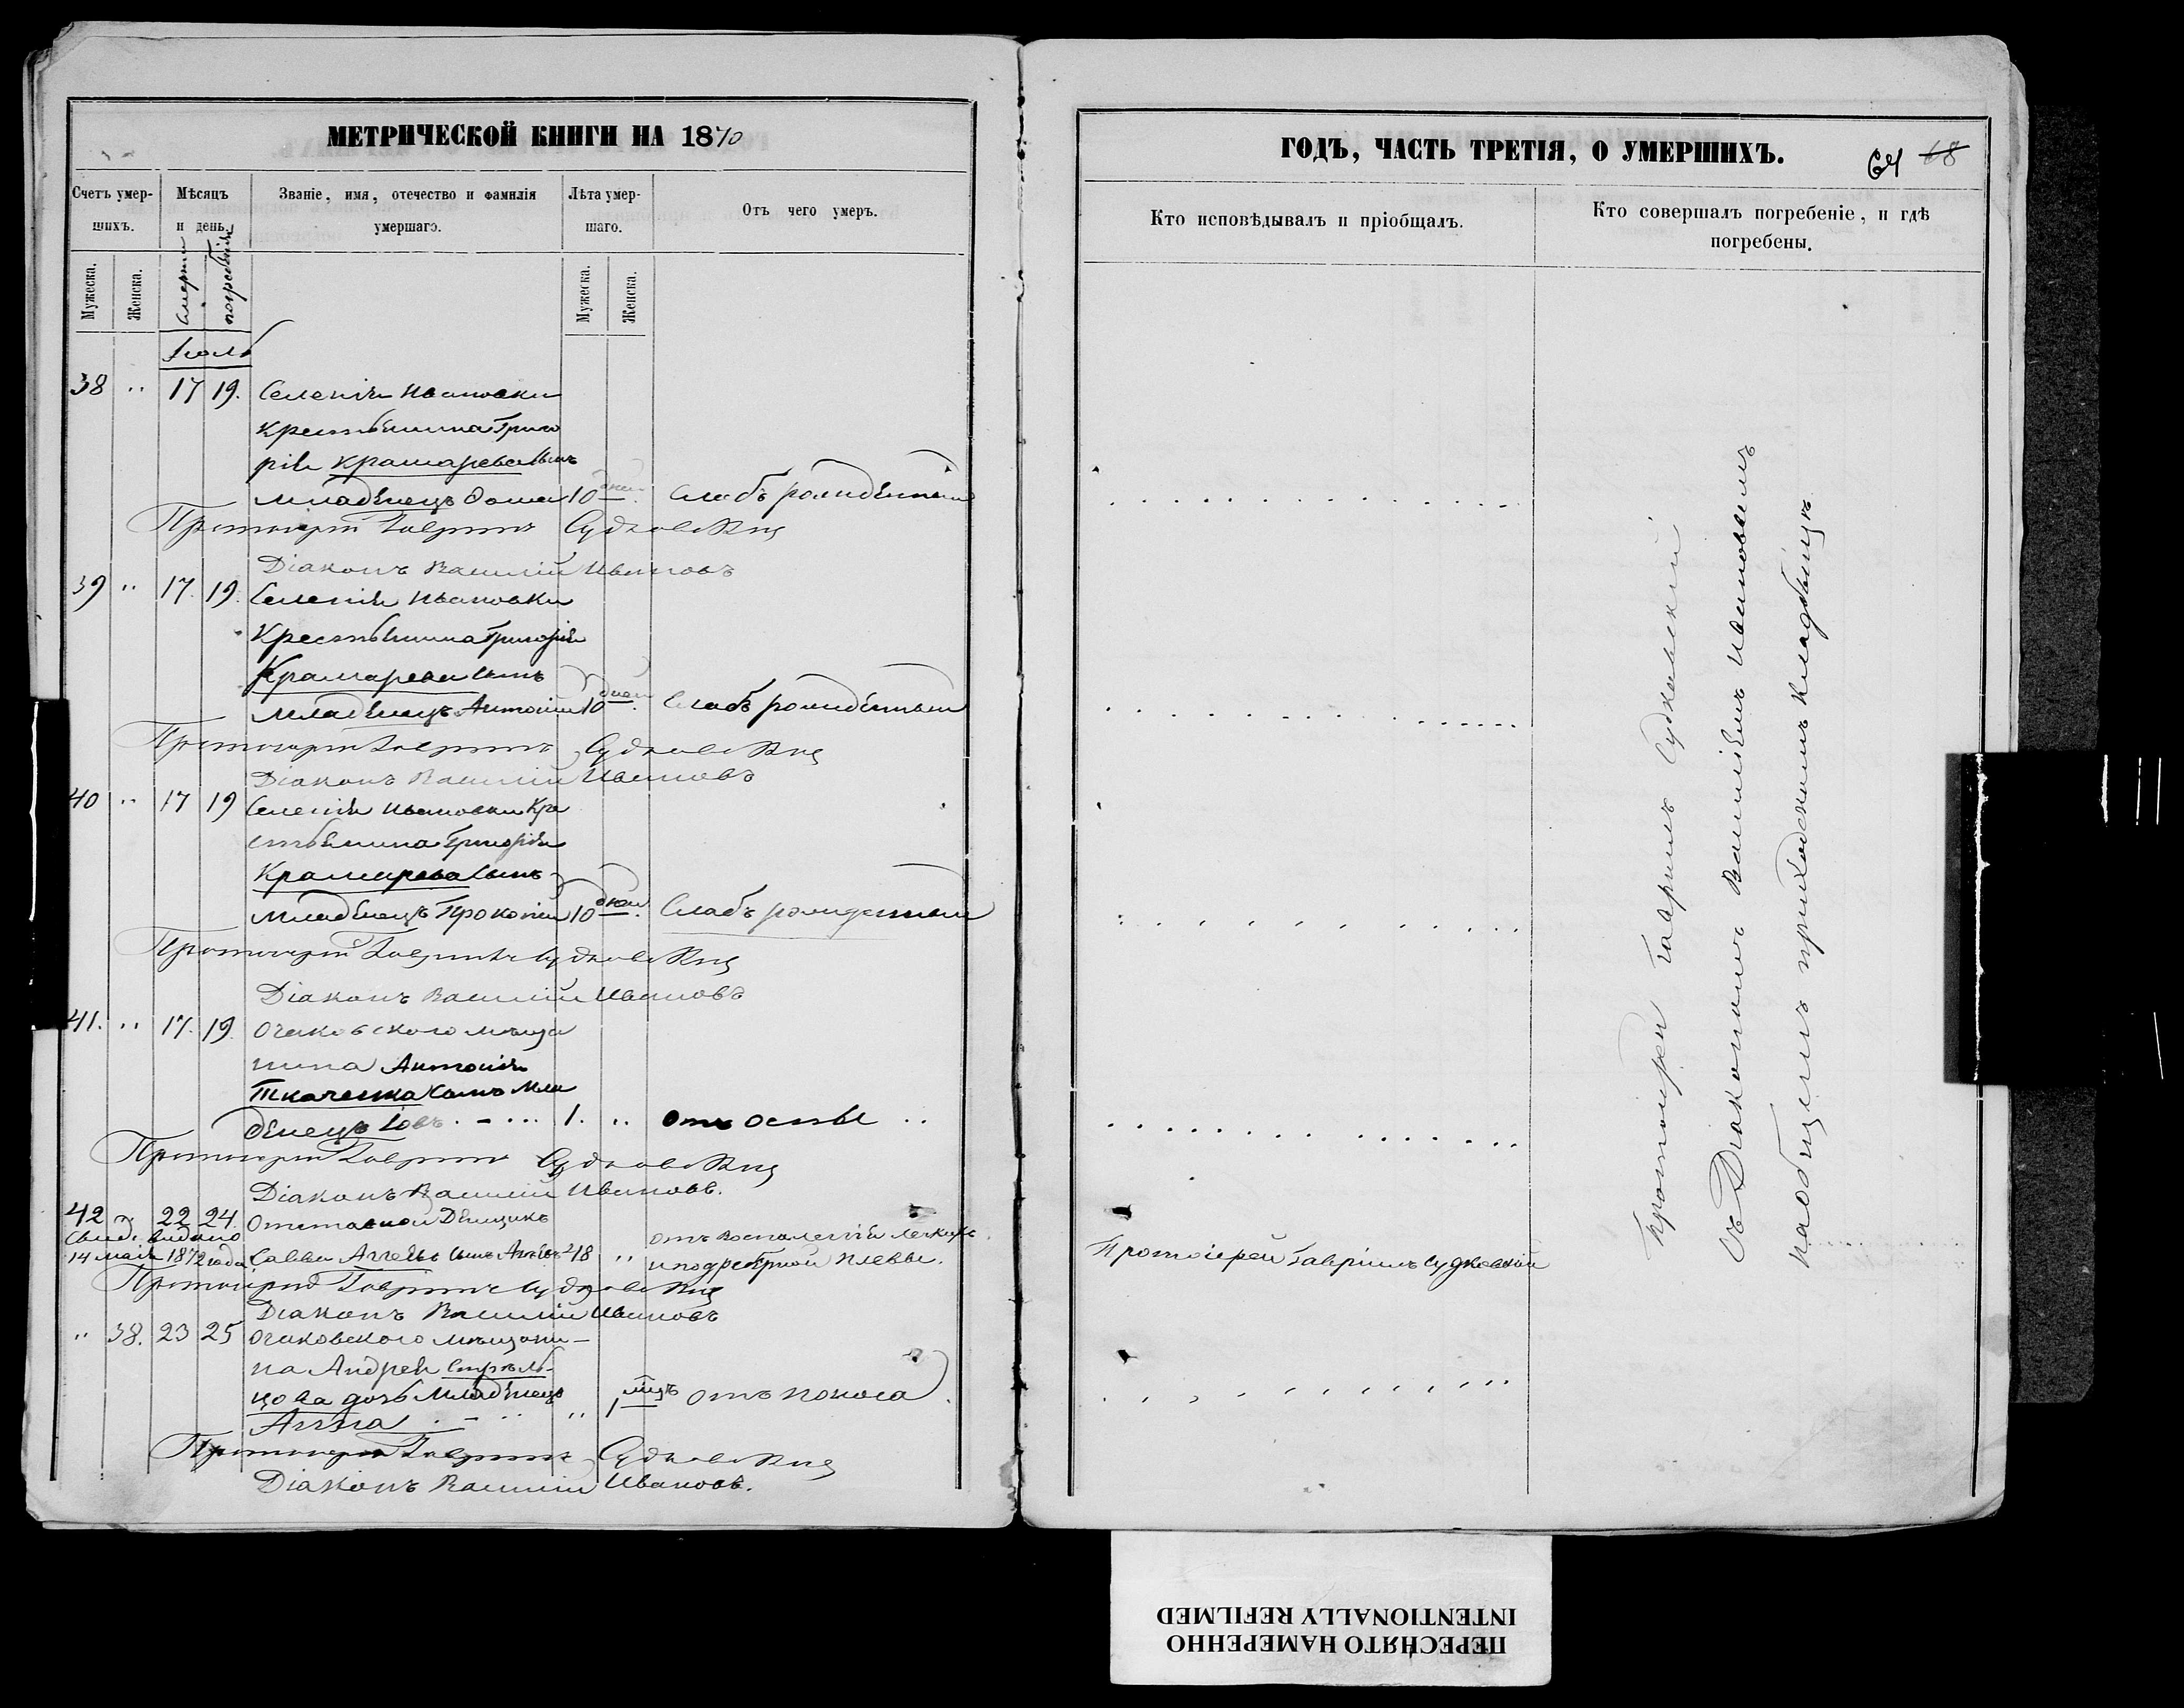 МЕТРИЧЕСКОЙ КНИГИ НА 1870
Счетъ умер-
шихъ.
Мѣсяцъ
и день.
Званіе, имя, отечество и фамилія
умершаго.
Лѣта умер-
шаго.
Отъ чего умеръ.
Мужеска.
Женска.
смерти
погребенія
Мужеска.
Женска.
Іюль
38 " 17 19. Селенія Ивановки
Крестьянина Григо
рія Крамарева сынъ
младенецъ Ѳома 10 дней. Слабъ рожденный
Протоіерей Гавріилъ Судковскій
Діаконъ Василій Ивановъ
39 " 17. 19. Селенія Ивановки
Крестьянина Григорія
Крамарева сынъ
младенецъ Антоній 10 дней. Слабъ рожденный
Протоіерей Гавріилъ Судковскій
Діаконъ Василій Ивановъ
40 " 17 19 Селенія Ивановки Кре
стьянина Григорія
Крамарева сынъ
младенецъ Прокопій 10 дней. Слабъ рожденный
Протоіерей Гавріилъ Судковскій
Діаконъ Василій Ивановъ
41. " 17. 19. Очаковского мѣща
нина Антонія
Ткаченка сынъ мла
денецъ Іовъ 1. " отъ оспы
Протоіерей Гавріилъ Судковскій
Діаконъ Василій Ивановъ.
42 " 22 24. Отставной Денщикъ
Свид. видано
14 мая 1872 года Савва сынъ 48 " отъ воспаленія легкихъ
и подреберной плевы.
Протоіерей Гавріилъ Судковскій
Діаконъ Василій Ивановъ
" 38. 23 25 Очаковского мѣщани-
на Андрея Стрель-
цова дочь младенецъ
Анна " 1 мцъ отъ поноса
Протоіерей Гавріилъ Судковскій
Діаконъ Василій Ивановъ.
ГОДЪ, ЧАСТЬ ТРЕТІЯ, О УМЕРШИХЪ.
64 68
Кто исповѣдывалъ и пріобщалъ.
Кто совершалъ погребеніе, и гдѣ
погребены.
Протоіерей Гавріилъ Судковскій
Протоіерей Гавріилъ Судковскій
съ Діакономъ Василіемъ Ивановымъ
на общемъ приходскомъ кладбищѣ
ПЕРЕСНЯТО НАМЕРЕННО
INTENTIONALLY REFILMED